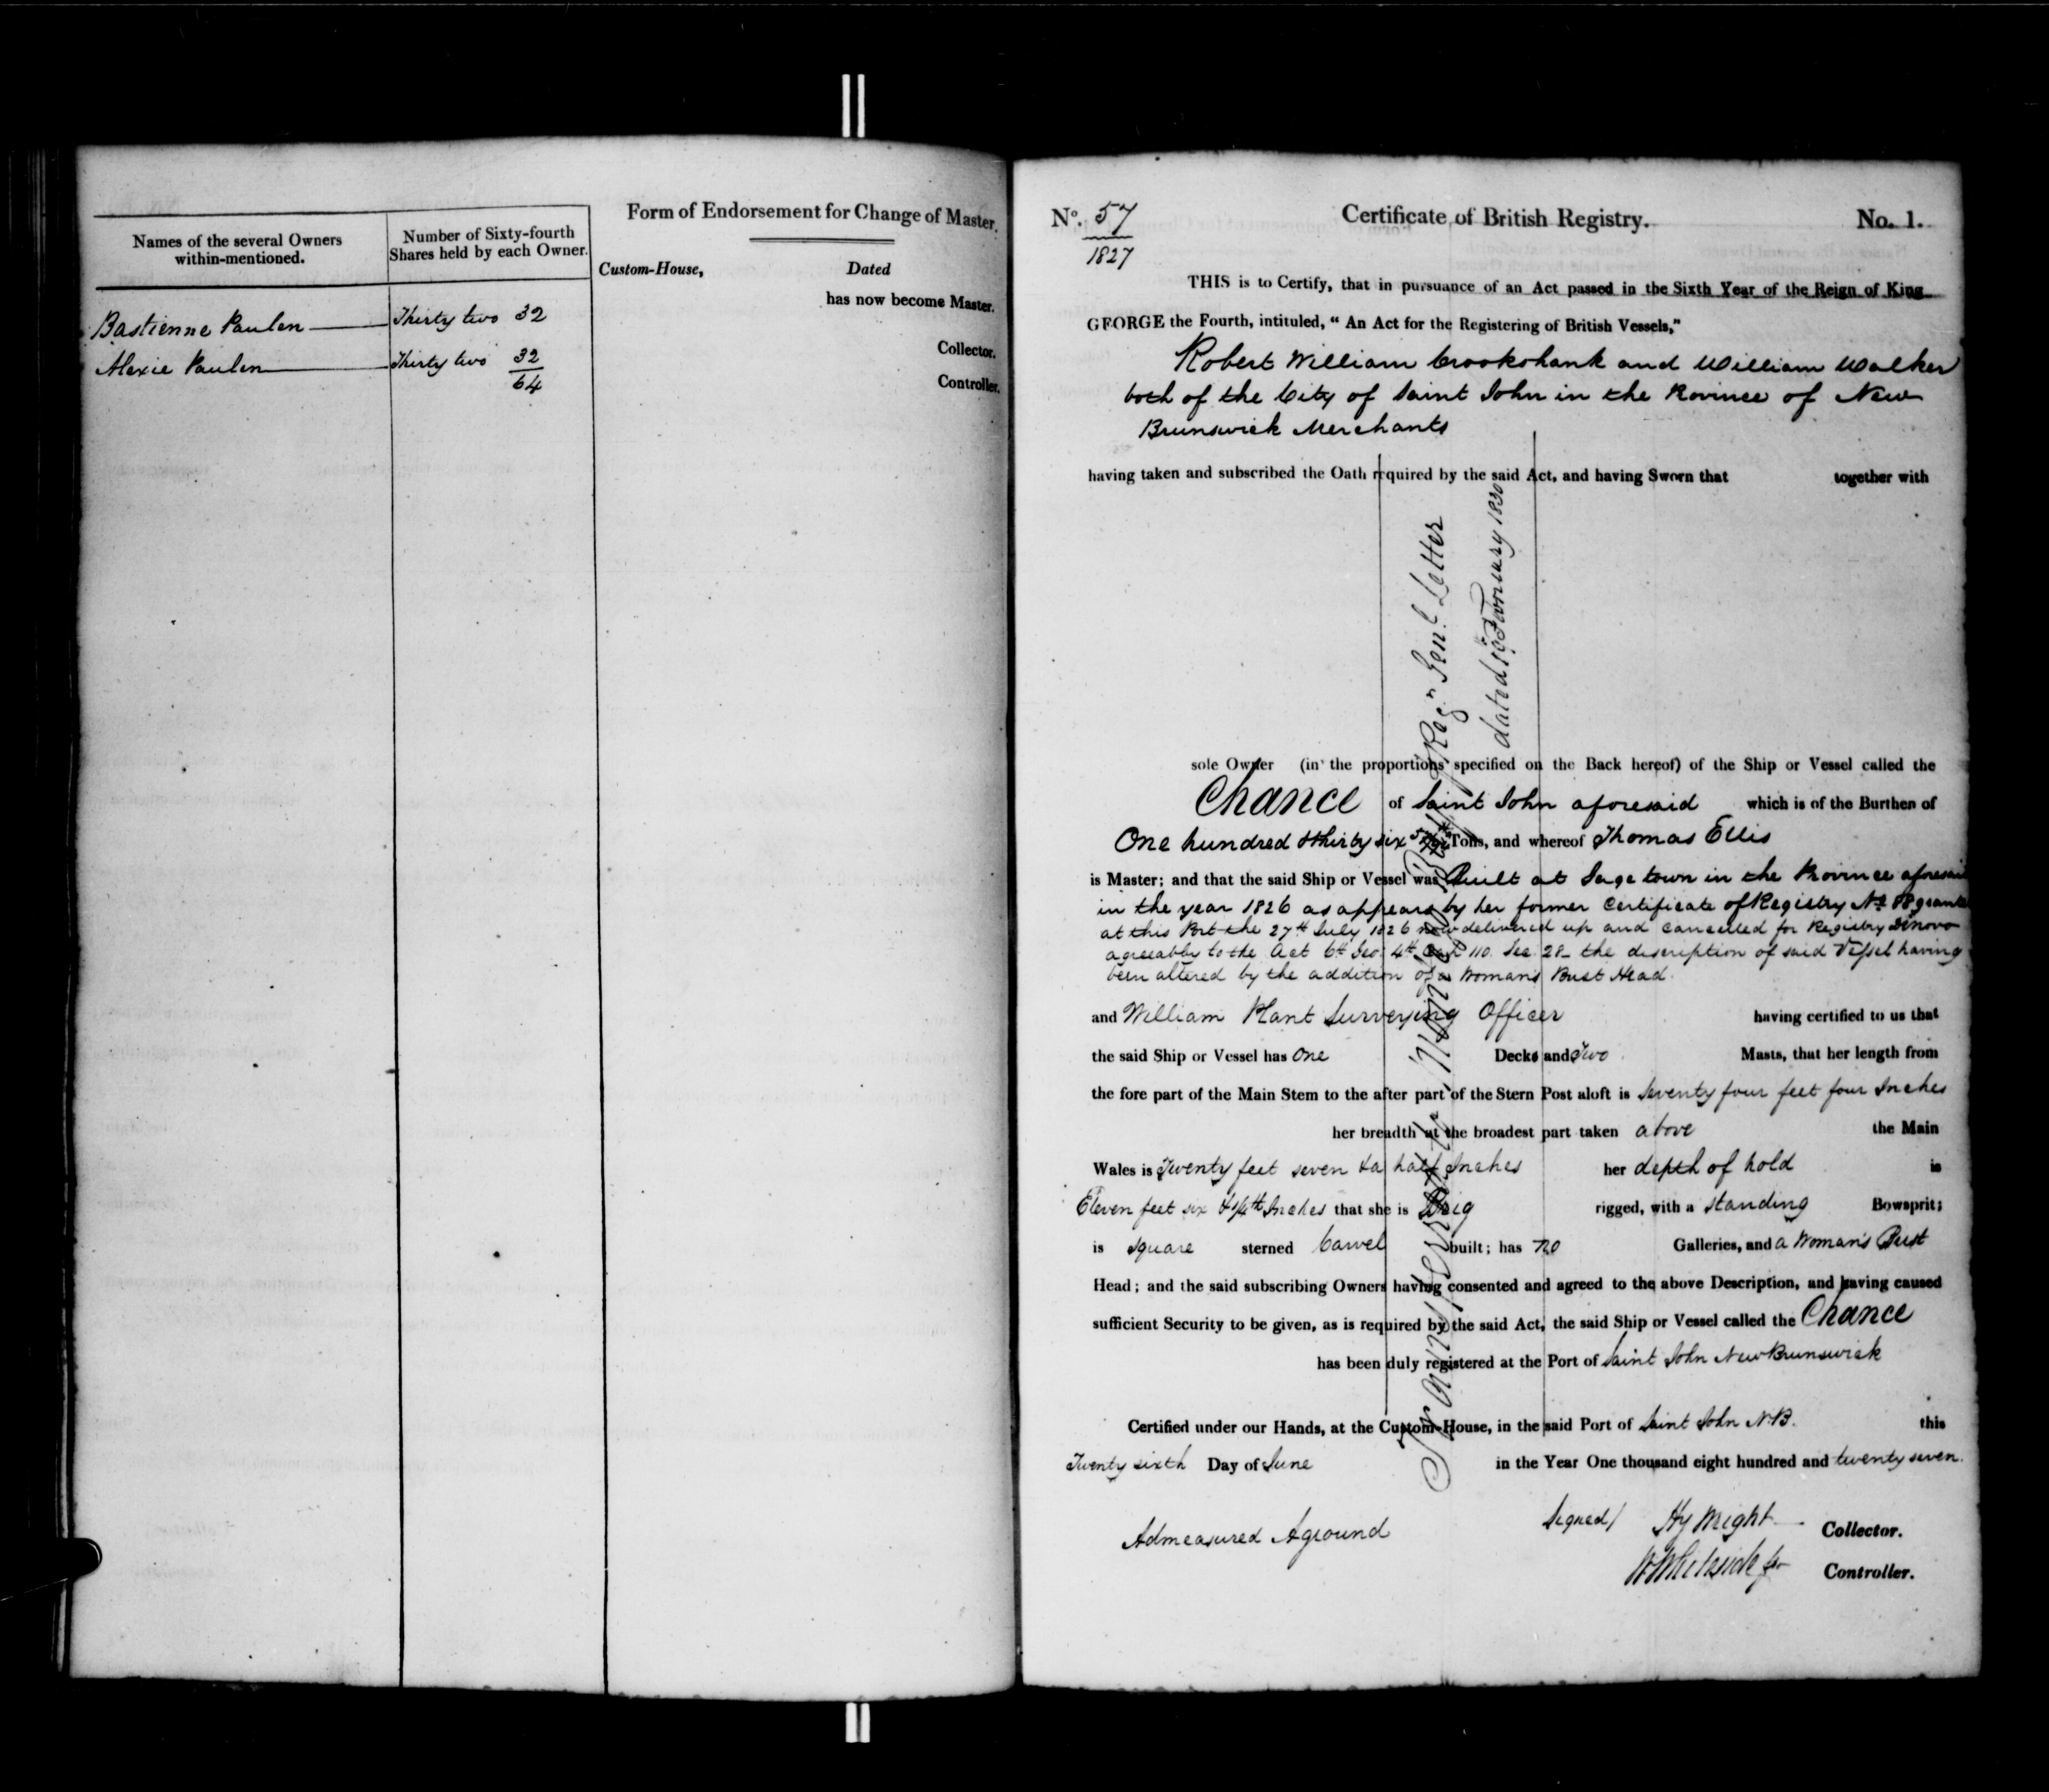 Names of the several Owners
within-mentioned.
Number of Sixty-fourth
Shares held by each Owner.
Bastienne Paulen Thirty two 32
Alexie Paulen Thirty two 32
64
Form of Endorsement for Change of Master.
Custom-House, Dated
has now become Master.
Collector.
Controller.
No. 57 Certificate of British Registry. No. 1.
1827
THIS is to Certify, that in pursuance of an Act passed in the Sixth Year of the Reign of King
GEORGE the Fourth, intituled, “ An Act for the Registering of British Vessels,”
Robert William Crookshank and William Walker
both of the City of Saint John in the Province of New
Brunswick Merchants
having taken and subscribed the Oath required by the said Act, and having Sworn that together with
sole Owner (in the proportions specified on the Back hereof) of the Ship or Vessel called the
Chance of Saint John aforesaid which is of the Burthen of
One hundred & thirty six Tons, and whereof Thomas Ellis
is Master; and that the said Ship or Vessel was Built at Gagetown in the Province aforesaid
in the year 1826 as appears by her former Certificate of Registry No 88 granted
at this Port the 27th July 1826 now delivered up and cancelled for Registry Denovo
agreeably to the Act 6th Geo. 4th Cap 110. Sec. 28 the description of said Vessel having
been altered by the addition of a Woman's Bust Head.
and William Plant Surveying Officer having certified to us that
the said Ship or Vessel has One Decks and Two Masts, that her length from
the fore part of the Main Stem to the after part of the Stern Post aloft is Seventy four feet four Inches
her breadth at the broadest part taken above the Main
Wales is Twenty feet seven & a half Inches her depth of hold is
Eleven feet six & 1/4th Inches that she is Brig rigged, with a standing Bowsprit;
is square sterned Carvel built; has no Galleries, and a Woman's Bust
Head; and the said subscribing Owners having consented and agreed to the above Description, and having caused
sufficient Security to be given, as is required by the said Act, the said Ship or Vessel called the Chance
has been duly registered at the Port of Saint John New Brunswick
Certified under our Hands, at the Custom-House, in the said Port of Saint John N.B. this
Twenty sixth Day of June in the Year One thousand eight hundred and twenty seven.
Admeasured Aground
Signed/ Hy Wright Collector.
W Whiteside Controller.
Regr Genl Letter
dated January 1830